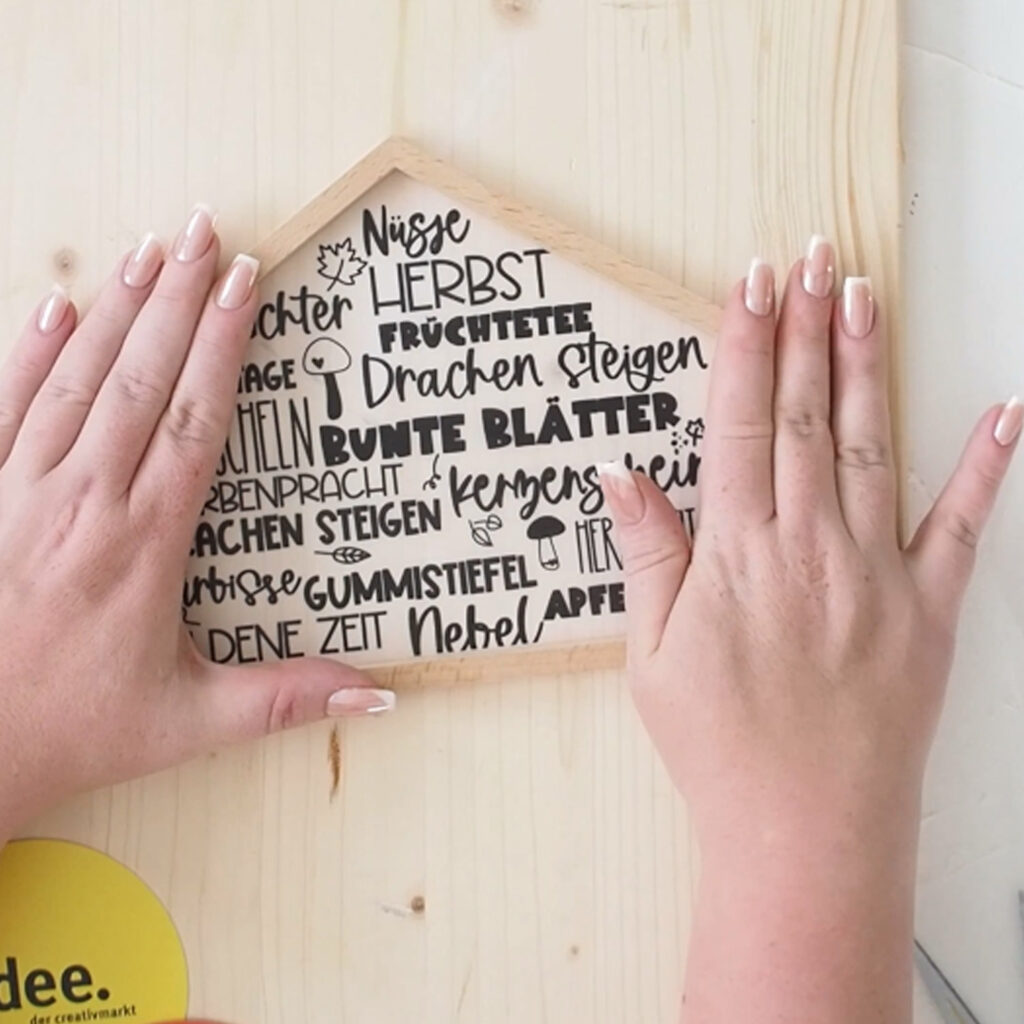 Nüsse
HERBST
chter
FRÜCHTETEE
TAGE
Drachen steigen
CHELN
BUNTE BLÄTTER
RBENPRACHT
ACHEN STEIGEN
HER
rbisse
GUMMISTIEFEL
APFE
DENE ZEIT
Nebel
dee.
der creativmarkt